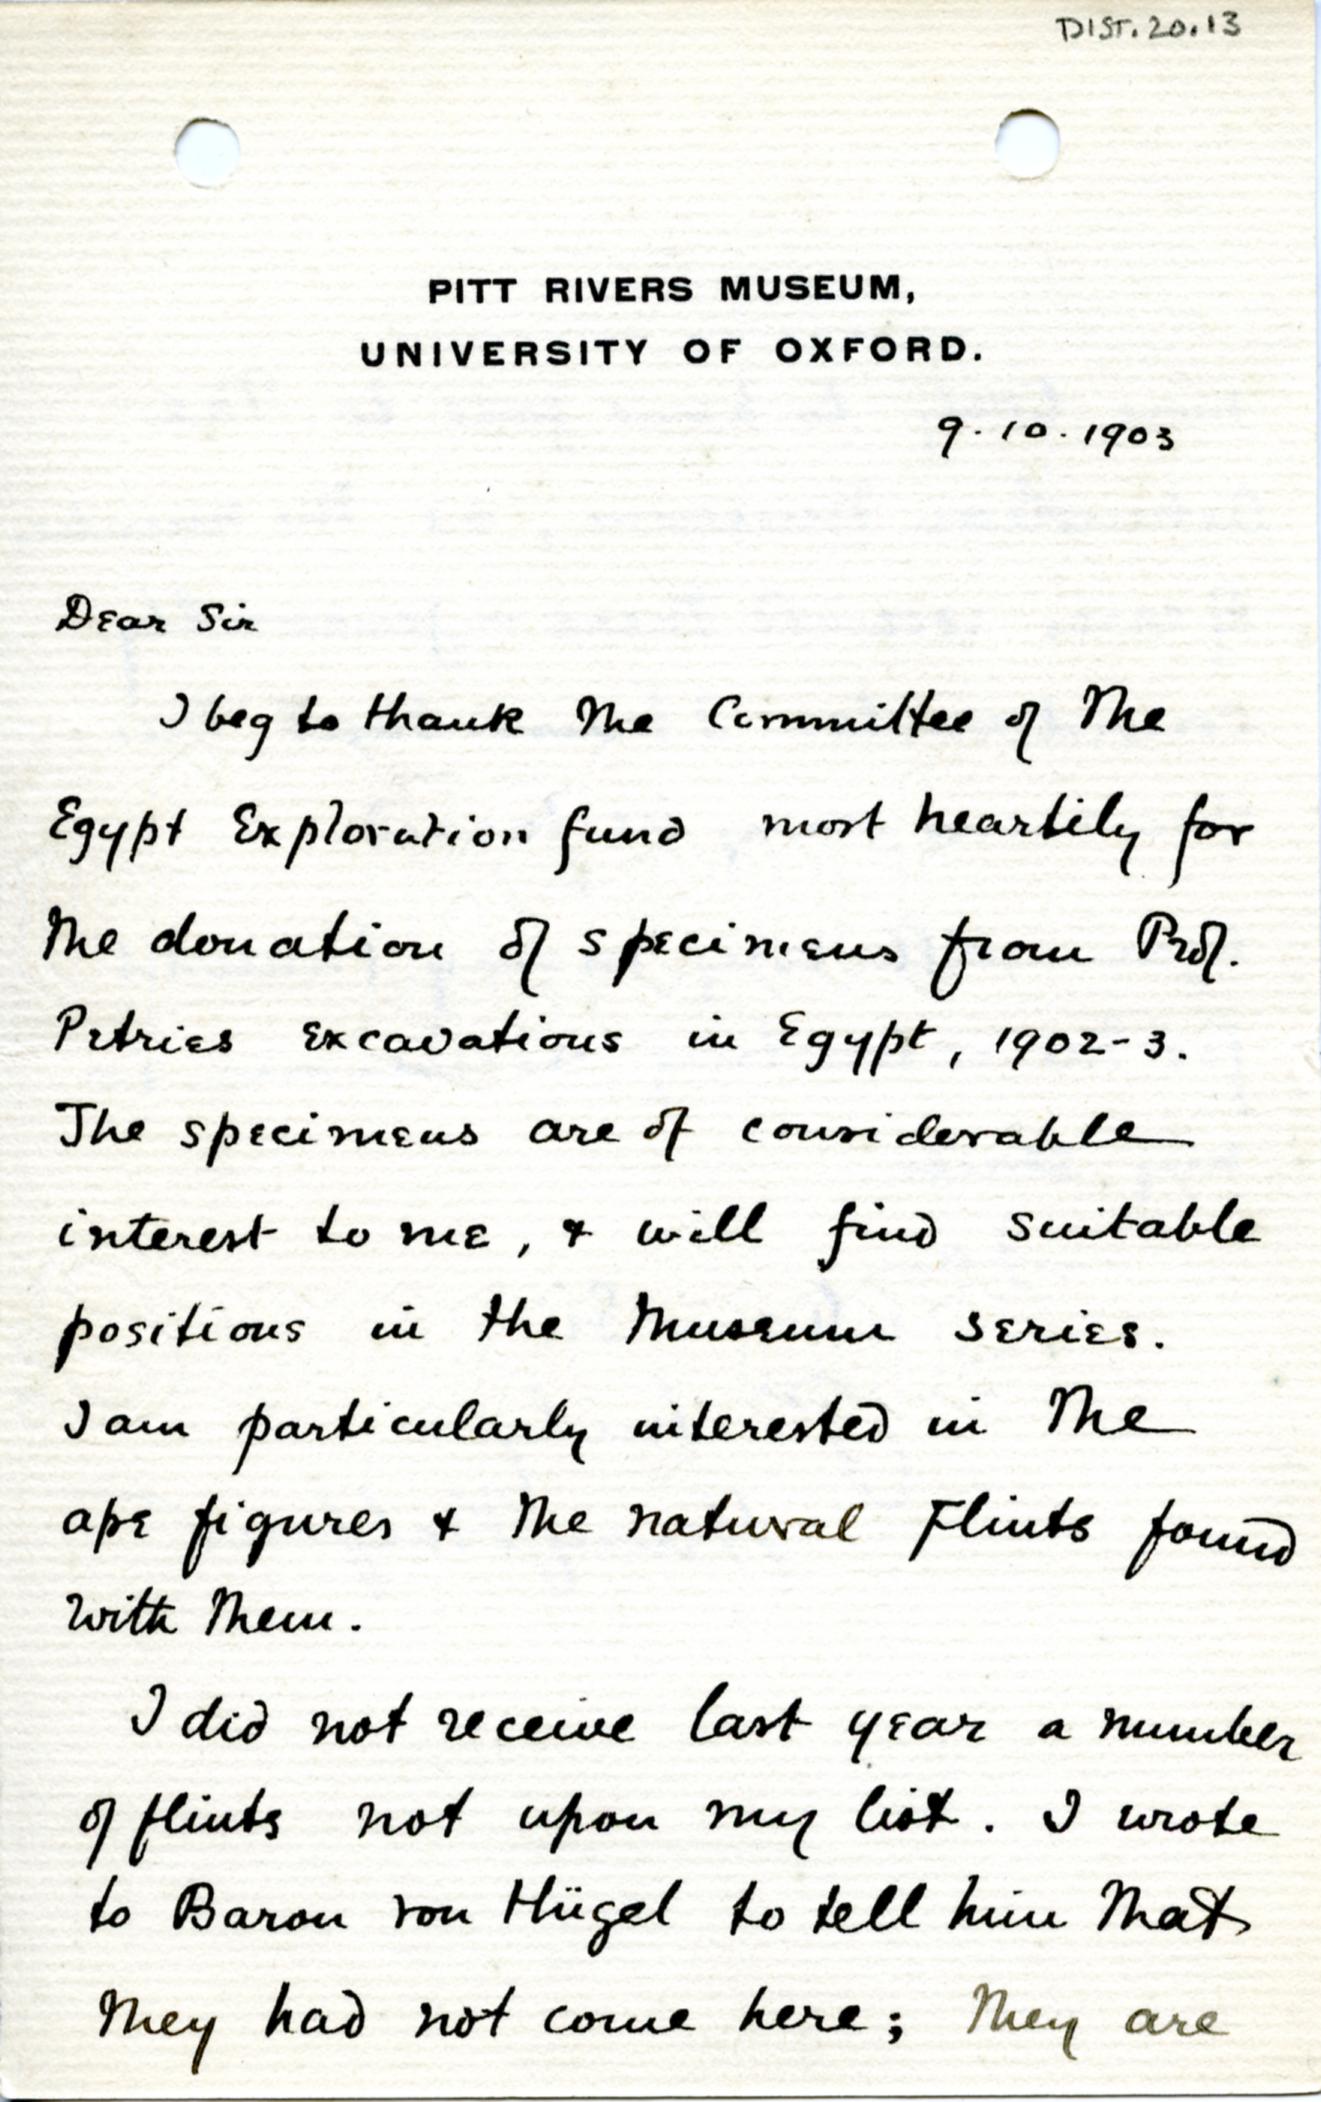 DIST.20.13
PITT RIVERS MUSEUM,
UNIVERSITY OF OXFORD.
9.10.1903
Dear Sir
I beg to thank the Committee of the
Egypt Exploration fund most heartily for
the donation of specimens from Prof.
Petries excavations in Egypt, 1902-3.
The specimens are of considerable
interest to me, & will find suitable
positions in the Museum series.
I am particularly interested in the
ape figures & the natural Flints found
with them.
I did not receive last year a number
of flints not upon my list. I wrote
to Baron von Hügel to tell him that
they had not come here; they are